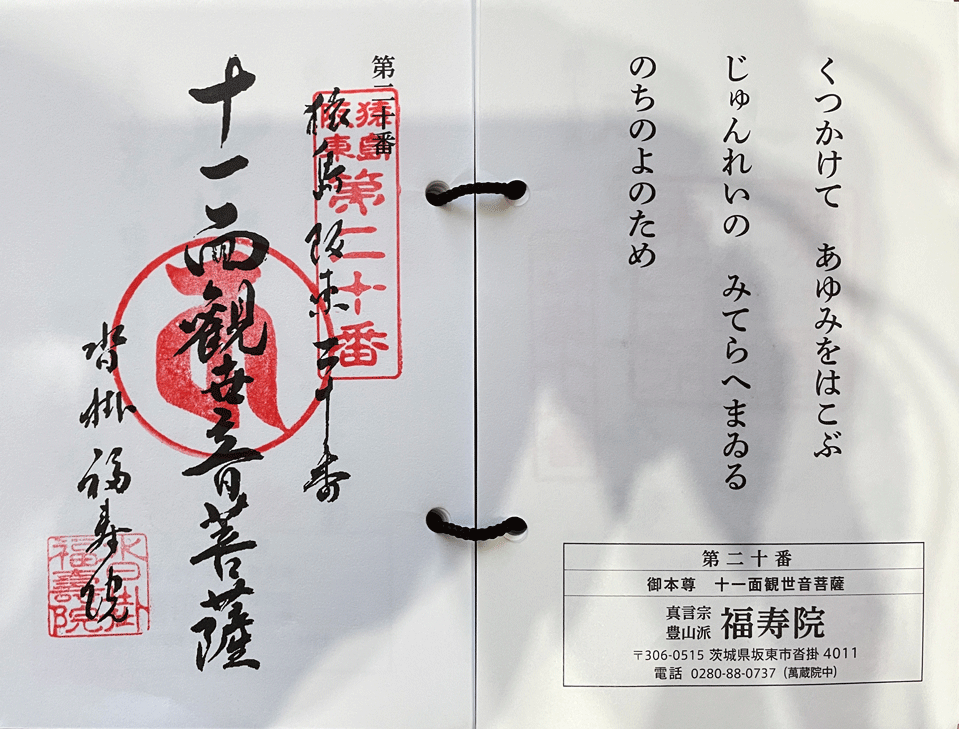 くつかけて　あゆみをはこぶ
じゅんれいの　みてらへまゐる
のちのよのため
第二十番
御本尊　十一面観世音菩薩
真言宗
豊山派
福寿院
〒306-0515 茨城県坂東市沓掛 4011
電話 0280-88-0737（萬蔵院中）
第二十番
猿島
阪東
第二十番
猿島阪東二十番
十一面観世音菩薩
沓掛福寿院
沓掛
福壽院